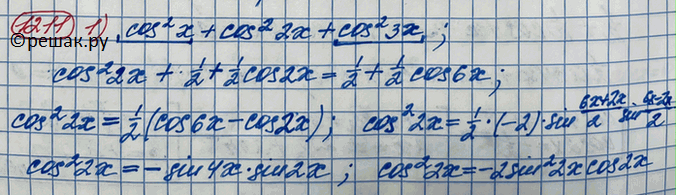 1211 1) cos²x + cos²2x + cos²3x ;
©решак.ру
cos²2x + 1/2 + 1/2 cos2x = 1/2 + 1/2 cos6x ;
cos²2x = 1/2 (cos6x - cos2x) ; cos²2x = 1/2 · (-2) · sin (6x+2x)/2 · sin (6x-2x)/2
cos²2x = -sin4x · sin2x ; cos²2x = -2sin²2x cos2x